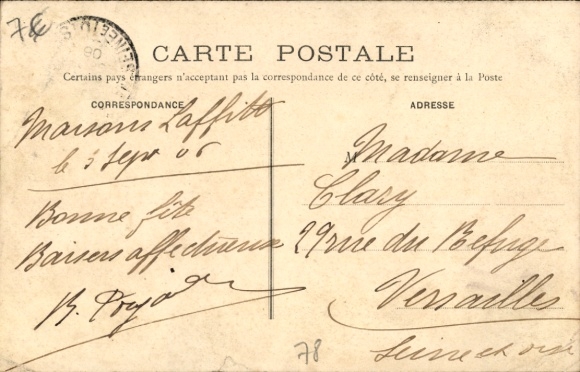 78
CARTE POSTALE
Certains pays étrangers n'acceptant pas la correspondance de ce côté, se renseigner à la Poste
CORRESPONDANCE
Maisons Laffitte
le 3 Sept 06
Bonne fête
Baisers affectueux
ADRESSE
M Madame
Clary
29 rue du Refuge
Versailles
Seine et oise
78